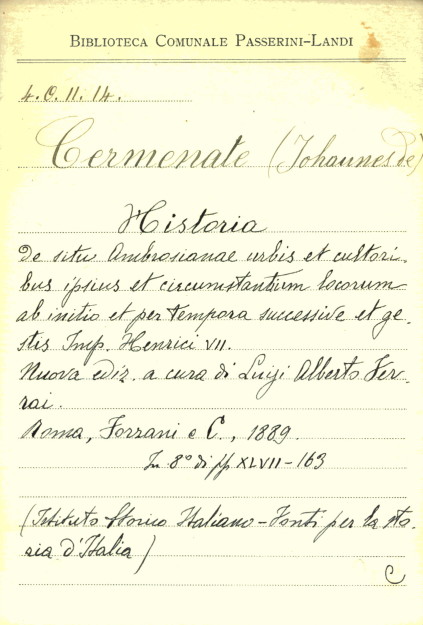 BIBLIOTECA COMUNALE PASSERINI-LANDI
4.C.II.14.
Cermenate (Johannes de)
Historia
de situ Ambrosianae urbis et cultori-
bus ipsius et circumstantium locorum
ab initio et per tempora successive et ge-
stis Imp. Henrici VII.
Nuova ediz. a cura di Luigi Alberto Fer-
rai.
Roma, Forzani e C., 1889.
In 8° di pp XLVII-163
(Istituto Storico Italiano-Fonti per la sto-
ria d'Italia)
C